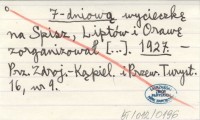 7-dniową wycieczkę
na Spisz, Liptów i Orawę
zorganizował [...]. 1927 -
Prz. Zdroj.-Kąpiel. i Przew. Turyst.
16, nr 9.